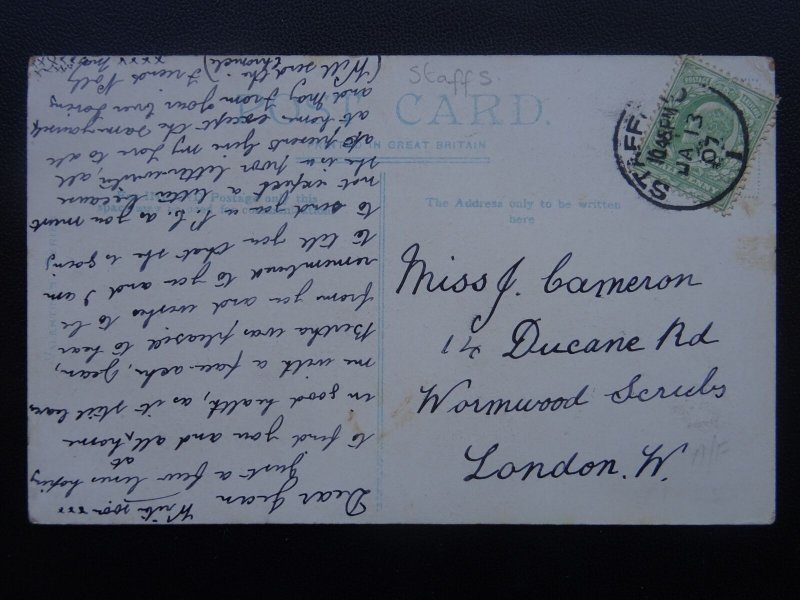 Staffs.
POST CARD.
PRINTED IN GREAT BRITAIN
The Address only to be written
here
STAFFORD
10.45 PM
JA 13
07
1
Miss J. Cameron
14 Ducane Rd
Wormwood Scrubs
London. W.
A/F
Write soon xxx
Dear Jean
Just a few lines hoping
to find you and all at home
in good health, as it still leaves
me with a face ache, Jean,
Bertha was pleased to hear
from you and wishes to be
remembered to you and I am
to tell you that she is going
to send you a P.C. as you must
not expect a letter because
she is a poor letter-writer, all
at present give my love to all
at home except the same yourself
and may from your ever loving
Friend Polly
(Will send the Chronicle)
xxxx